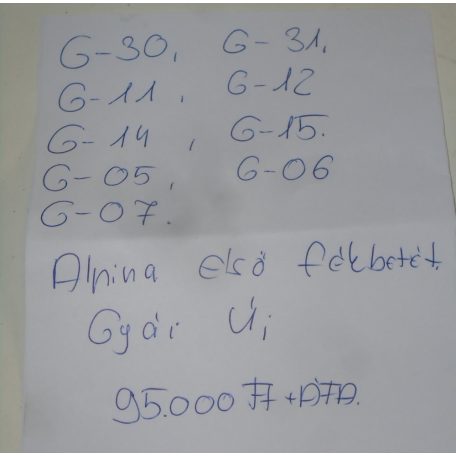 G-30, G-31,
G-11, G-12
G-14, G-15.
G-05, G-06
G-07.
Alpina első fékbetét.
Gyári Új
95.000 Ft +ÁFA.